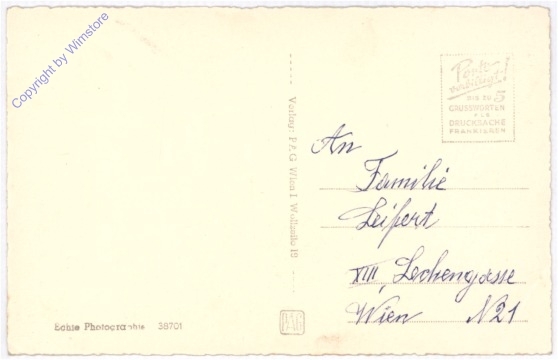 Copyright by Wimstore
Porto
verbilligt!
BIS ZU 5
GRUSSWORTEN
ALS
DRUCKSACHE
FRANKIEREN
An
Familie
Leifert
XIII, Lechengasse
Wien N21
Verlag: P.A.G Wien I Wollzeile 19
PAG
Echte Photographie 38701